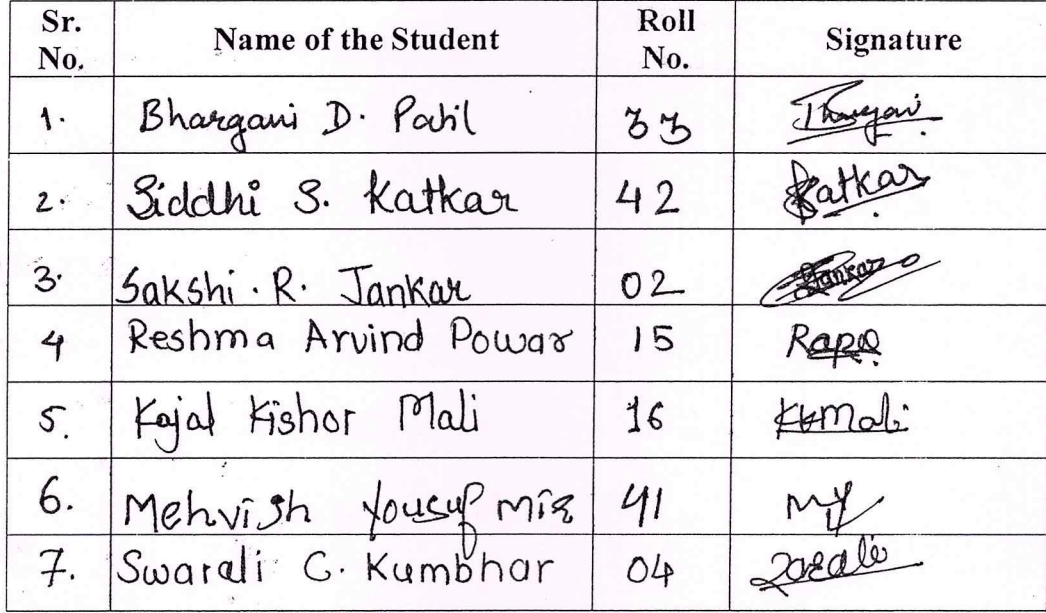 Sr. No. Name of the Student Roll No. Signature
1. Bhargavi D. Patil 33
2. Siddhi S. Katkar 42 Katkar
3. Sakshi. R. Jankar 02 Jankar
4 Reshma Arvind Powar 15
5. Kajal Kishor Mali 16 KKMali
6. Mehvish Yousuf Mir 41 MY
7. Swarali C. Kumbhar 04